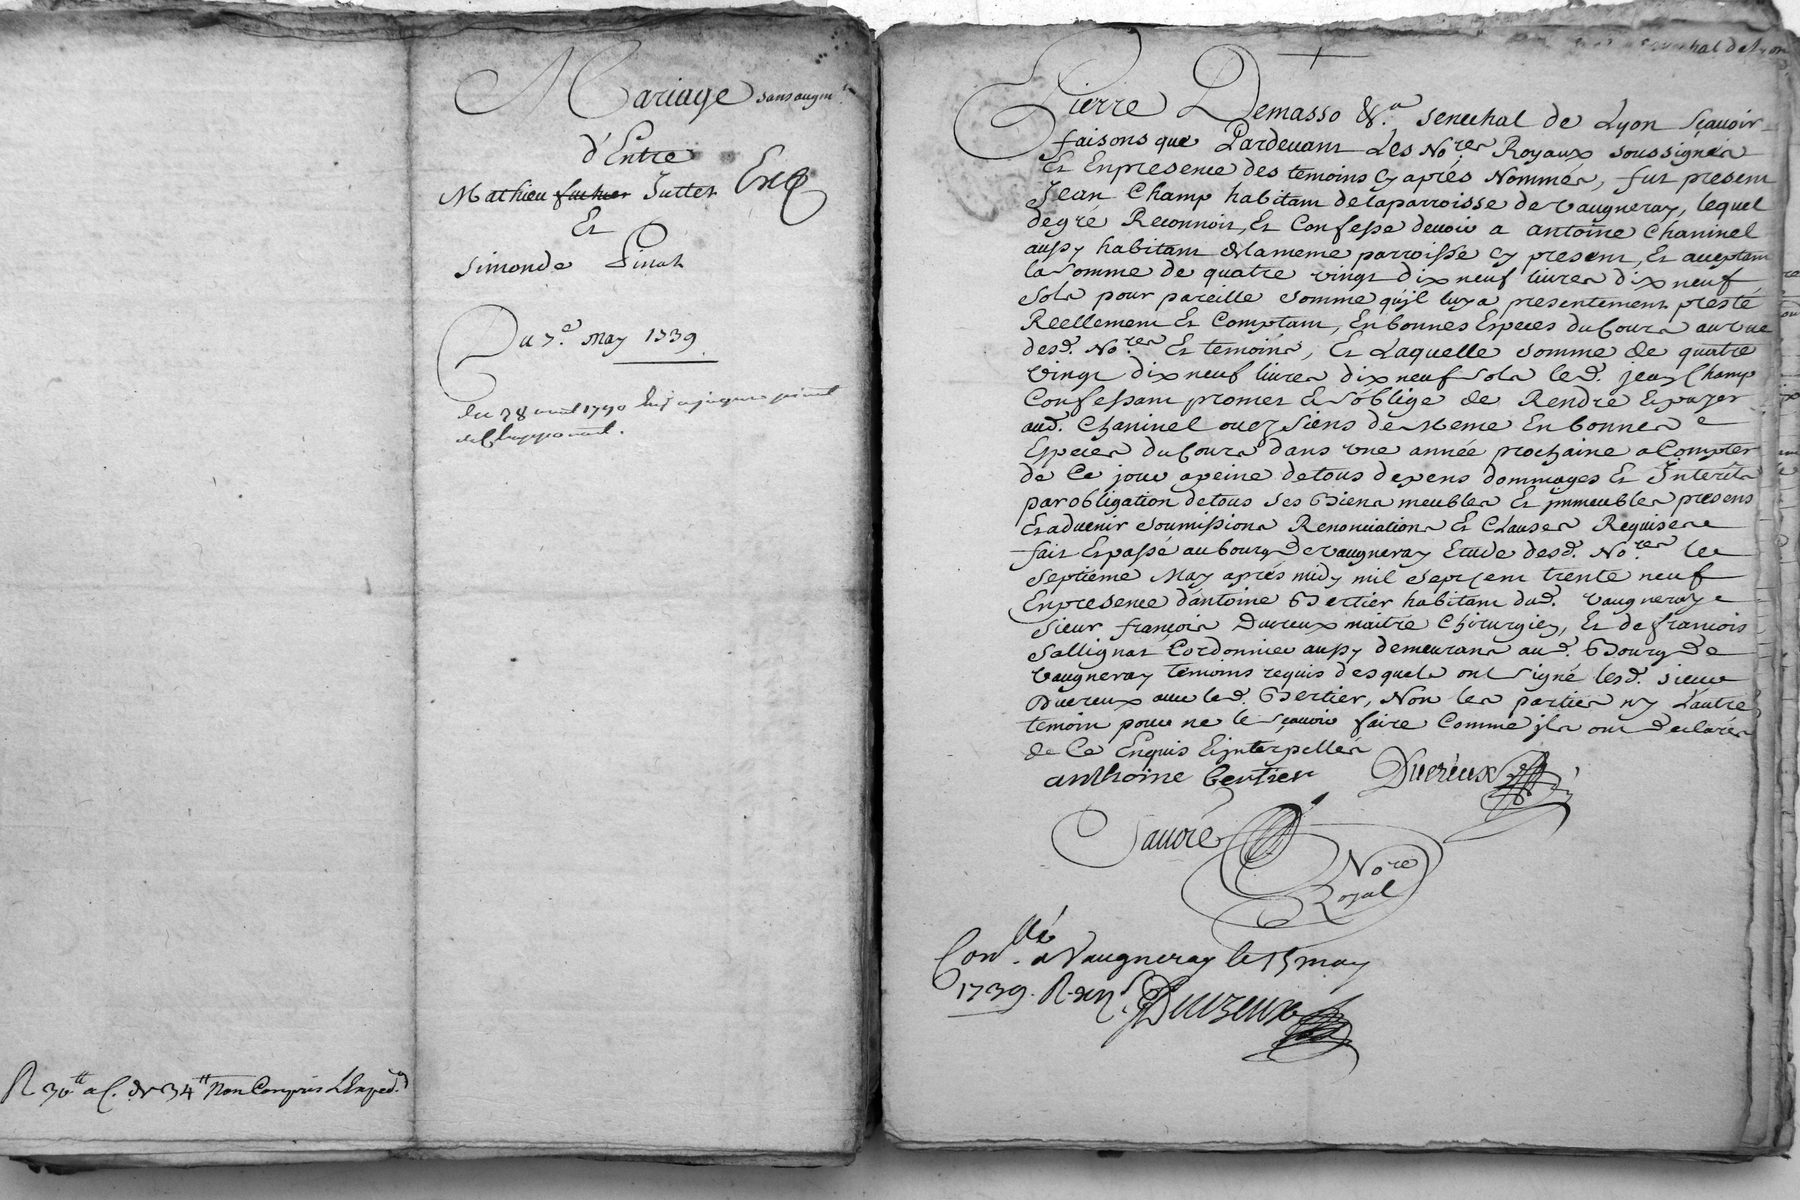 Mariage sans augm.t
d'Entre
Mathieu Jullet Exp
Et
Simonde Pinat
Du 7.e May 1739
R 36tt a C. de 34tt Non Compris L'Exped.
Pierre Demasso &.a Senechal de Lyon Sçavoir
faisons que Pardevant Les No.res Royaux soussignés
Et En presence des temoins cy apres Nommés, fut present
Jean Champ habitant de la parroisse de Vaugneray, lequel
de gré Reconnoit, Et Confesse devoir a antoine Chaninel
aussy habitant de la meme parroisse cy present, Et acceptant
la somme de quatre vingt dix neuf livres dix neuf
sols pour pareille somme qu'jl luy a presentement presté
Réellement Et Comptant, En bonnes Especes du Cours au vue
desd. No.res Et temoins, Et Laquelle somme de quatre
vingt dix neuf livres dix neuf sols le d. jean Champ
Confessant promet & s'oblige de Rendre Et payer
aud. Chaninel ou ez siens de meme En bonnes
Especes du Cours dans une année prochaine a Compter
de Ce jour a peine de tous depens dommages Et Interets
par obligation de tous ses Biens meubles Et jmmeubles presens
Et advenir soumissions Renonciations Et Clauses Requises
fait Et passé au bourg de Vaugneray Etude desd. No.res le
septieme May aprés midy mil sept cent trente neuf
En presence d'antoine Bertier habitant dud. Vaugneray
sieur françois Duvreux maitre Chirurgien, Et de francois
Sallignat Cordonnier aussy demeurans aud. Bourg de
Vaugneray temoins requis desquels ont signé lesd. sieur
Duvreux avec led. Bertier, Non les parties ny L'autre
temoin pour ne le sçavoir faire Comme jls ont declarés
de Ce Enquis Et jnterpellés
anthoine bertier Duvreux
Sauvré
No.re
Royal
Con.llé a Vaugneray le 15 may
1739. R.
Duvreux